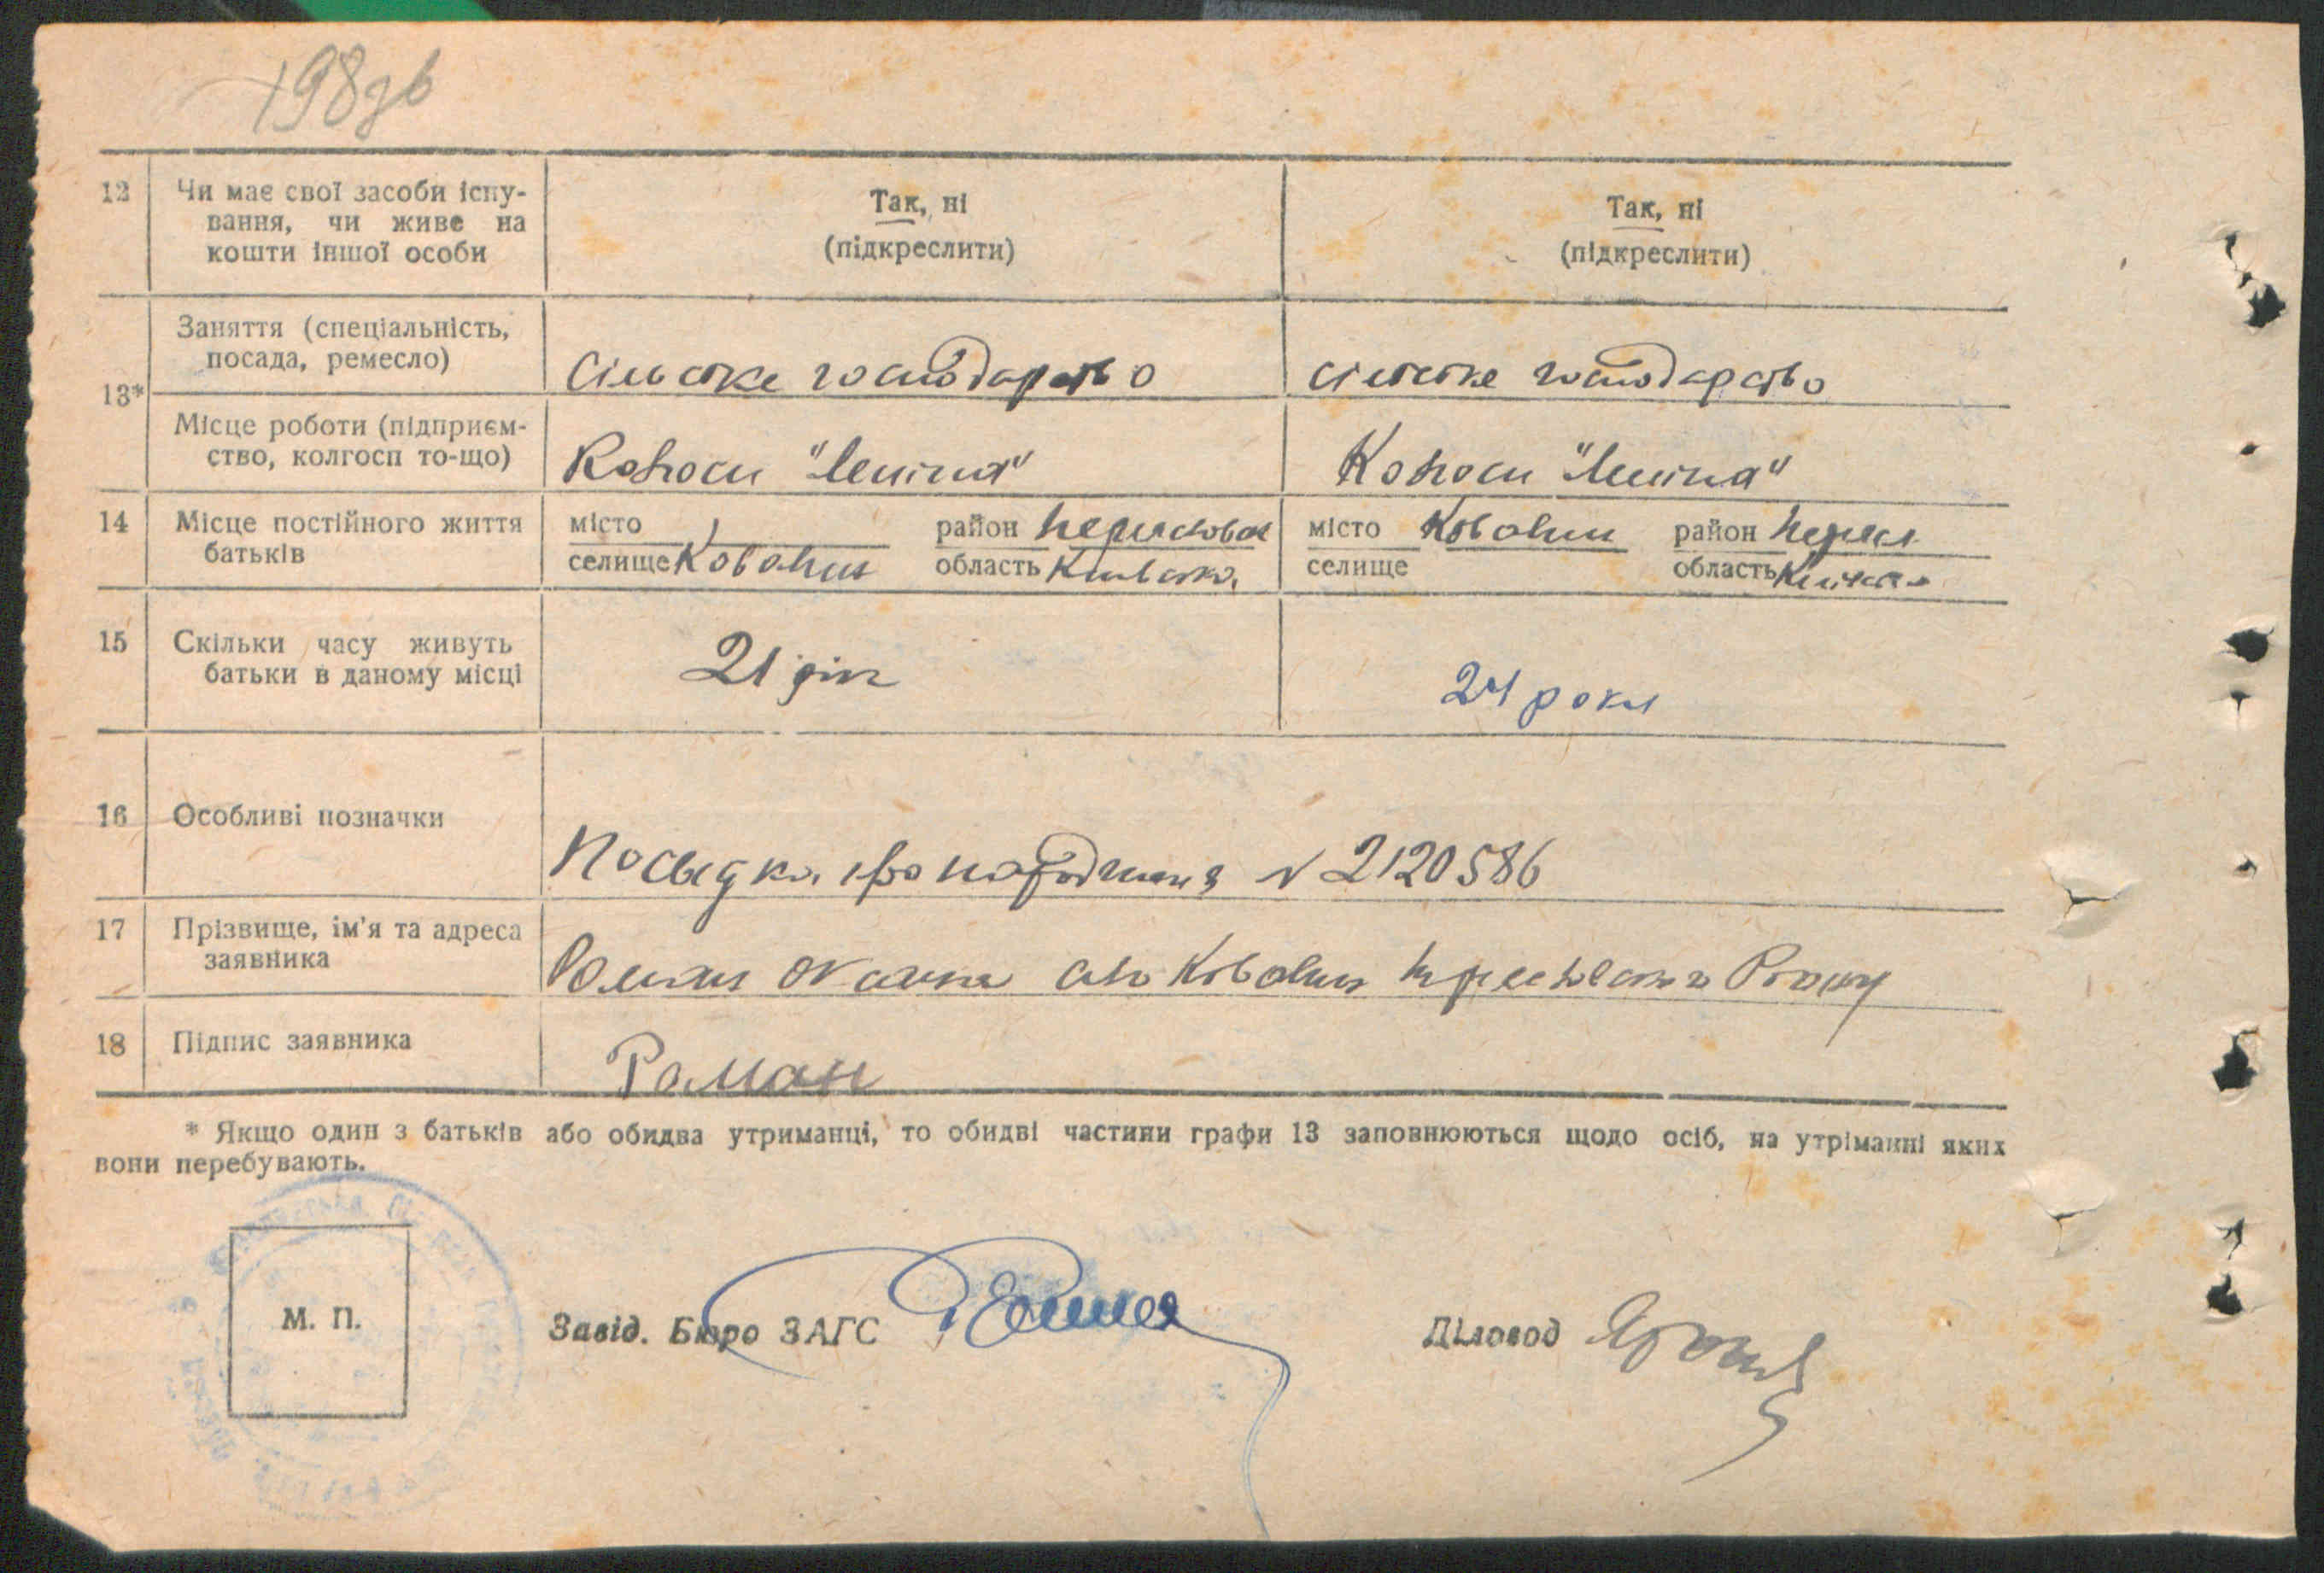 198зв
12 Чи має свої засоби існу-
вання, чи живе на
кошти іншої особи
Так, ні
(підкреслити)
Так, ні
(підкреслити)
13* Заняття (спеціальність,
посада, ремесло)
Сільське господарство
сільське господарство
Місце роботи (підприєм-
ство, колгосп то-що)
"Леніна"
"Леніна"
14 Місце постійного життя
батьків
місто
селище Ковалин
район
область Київська
місто Ковалин
селище
район Переясл
область
15 Скільки часу живуть
батьки в даному місці
21 рік
24 роки
16 Особливі позначки
Посвідка про народження N 2120586
17 Прізвище, ім'я та адреса
заявника
Роман село Ковалин
18 Підпис заявника
Роман
* Якщо один з батьків або обидва утриманці, то обидві частини графи 13 заповнюються щодо осіб, на утріманні яких
вони перебувають.
М. П.
Завід. Бюро ЗАГС
Діловод